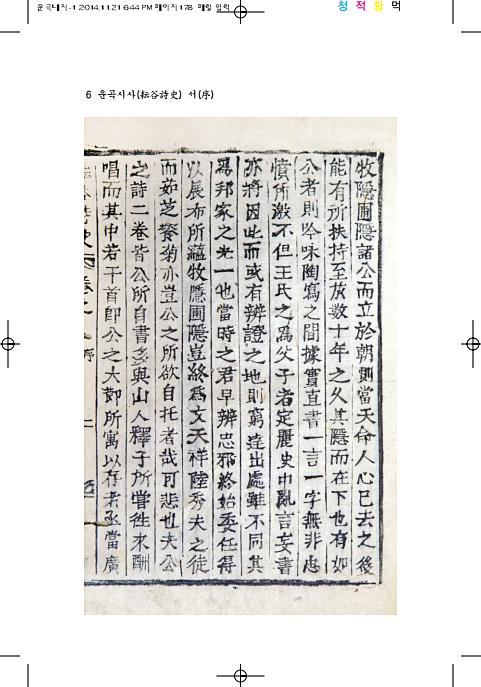 운곡대지-1 2014.11.21 6:44 PM 페이지178 매킬 입력
청 적 황 먹
6 운곡시사(耘谷詩史) 서(序)
牧隱圃隱諸公而立於朝則當天命人心已去之後
能有所扶持至於數十年之久其隱而在下也有如
公者則吟咏陶寫之間據實直書一言一字無非忠
憤所激不但王氏之爲父子者定麗史中亂言妄書
亦將因此而或有辨證之地則窮達出處雖不同其
爲邦家之光一也當時之君早辨忠邪終始委任得
以展布所蘊牧隱圃隱豈終爲文天祥陸秀夫之徒
而茹芝餐菊亦豈公之所欲自托者哉可悲也夫公
之詩二卷皆公所自書多與山人釋子所嘗徃來酬
唱而其中若干首卽公之大節所寓以存者丞當廣